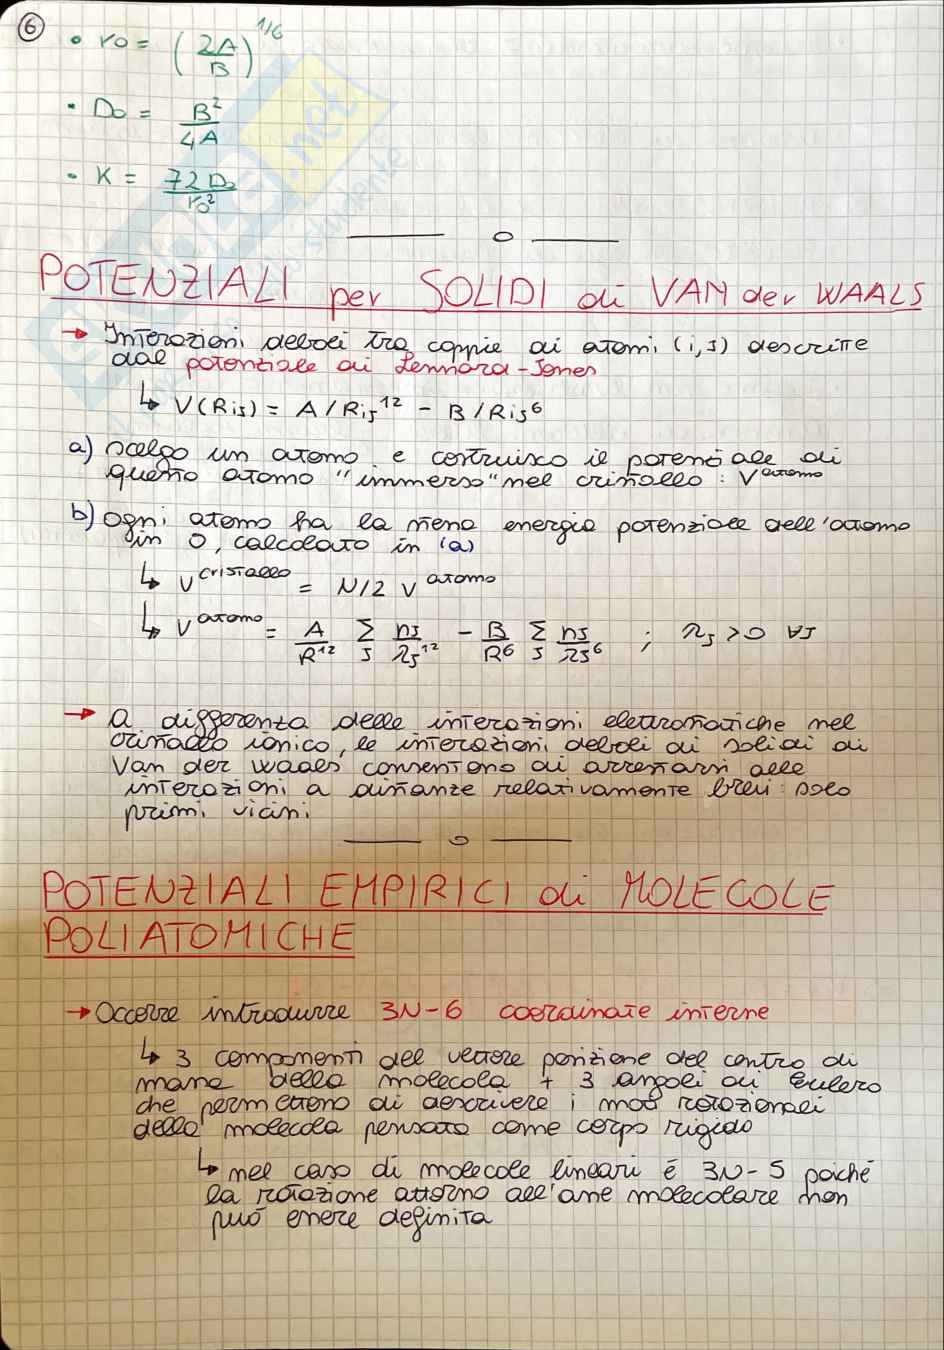 6
• r0 = (2A/B)^1/6
• D0 = B²/4A
• K = 72 D0/r0²
POTENZIALI per SOLIDI di VAN der WAALS
→ Interazioni deboli tra coppie di atomi (i,J) descritte
dal potenziale di Lennard-Jones
↳ V(RiJ) = A/RiJ^12 - B/RiJ^6
a) scelgo un atomo e costruisco il potenziale di
questo atomo "immerso" nel cristallo: V^atomo
b) ogni atomo ha la stessa energia potenziale dell'atomo
in O, calcolato in (a)
↳ V^cristallo = N/2 V^atomo
↳ V^atomo = A/R^12 Σ_J nJ/rJ^12 - B/R^6 Σ_J nJ/rJ^6 ; rJ > 0 ∀J
→ A differenza delle interazioni elettrostatiche nel
cristallo ionico, le interazioni deboli di solidi di
Van der Waals consentono di arrestarsi alle
interazioni a distanze relativamente brevi: solo
primi vicini
POTENZIALI EMPIRICI di MOLECOLE
POLIATOMICHE
→ Occorre introdurre 3N-6 coordinate interne
↳ 3 componenti del vettore posizione del centro di
massa della molecola + 3 angoli di Eulero
che permettono di descrivere i moti rotazionali
della molecola pensata come corpo rigido
↳ nel caso di molecole lineari è 3N-5 poiché
la rotazione attorno all'asse molecolare non
può essere definita